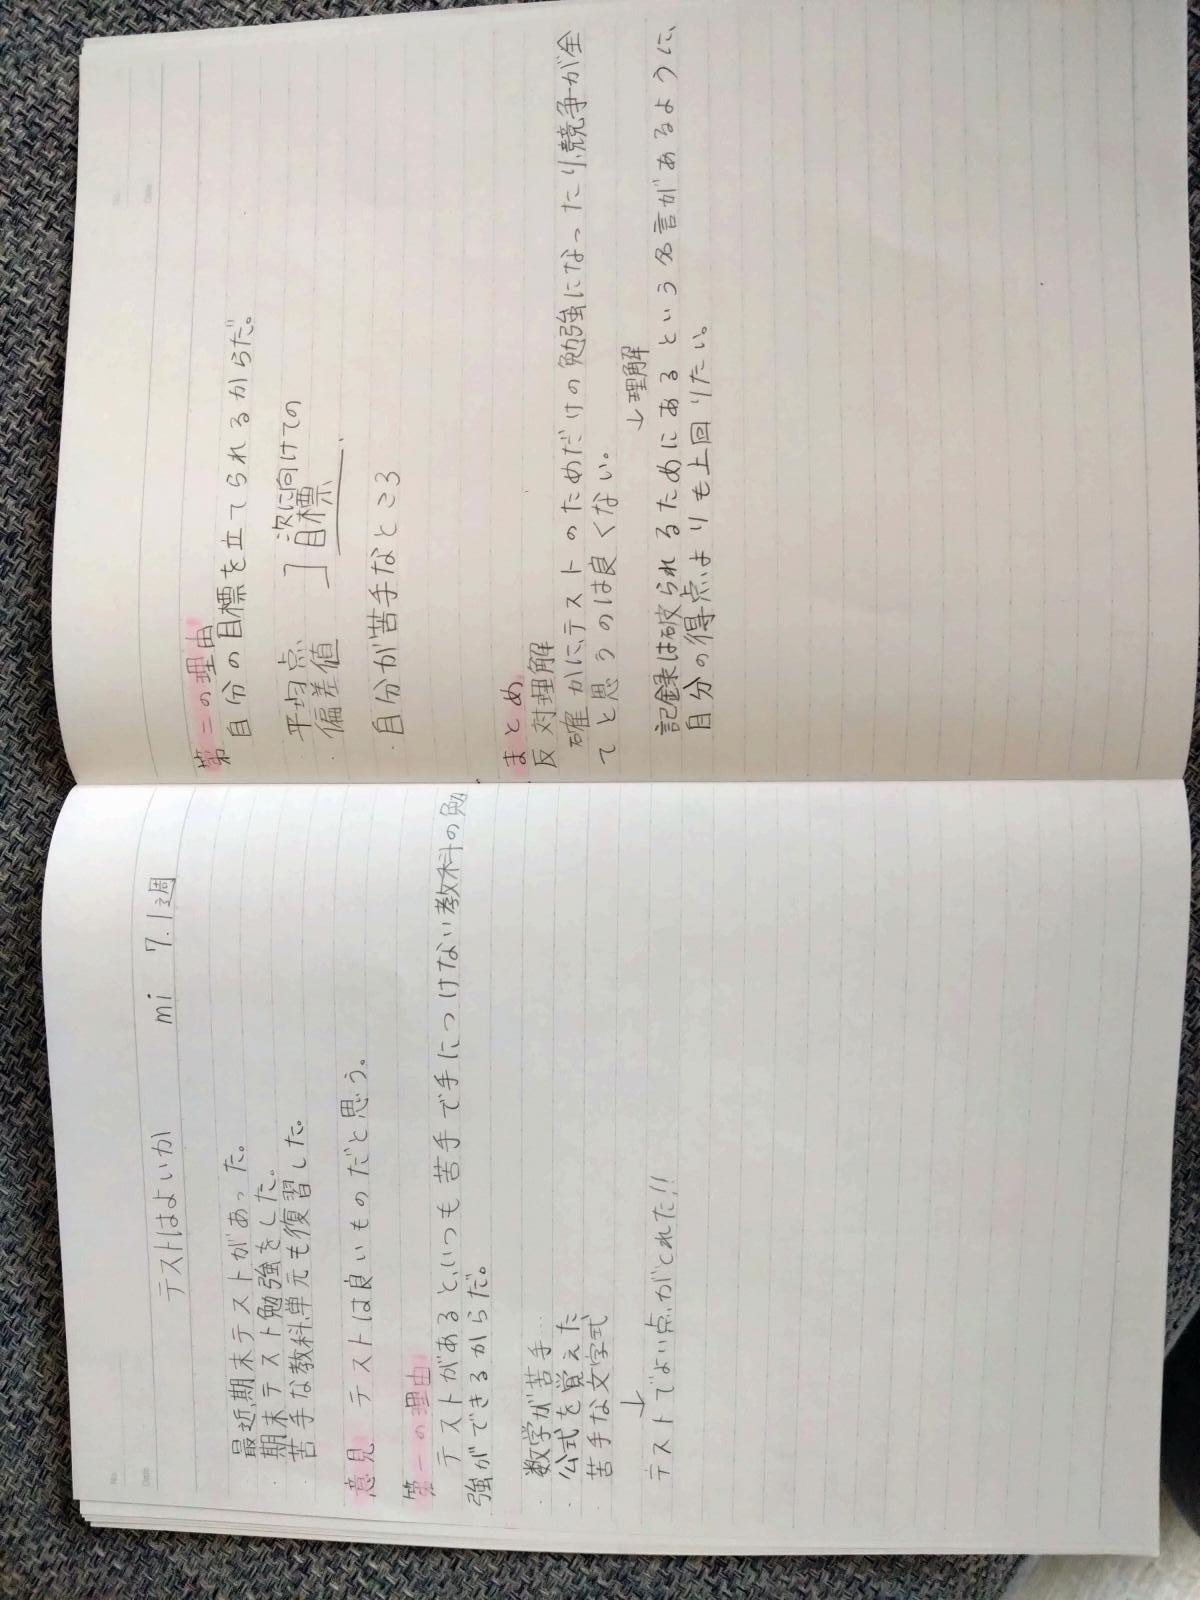 テストはよいか mi 7.1週
最近、期末テストがあった。
・期末テスト勉強をした。
・苦手な教科、単元も復習した。
意見 テストは良いものだと思う。
第一の理由
テストがあると、いつも苦手で手につけない教科の勉
強ができるからだ。
・数学が苦手…
・公式を覚えた
・苦手な文字式
↓
テストでよい点がとれた!!
第二の理由
自分の目標を立てられるからだ。
・平均点
・偏差値
］次に向けての
目標
・自分が苦手なところ
まとめ
反対理解
確かに、テストのためだけの勉強になったり、競争が全
てと思うのは良くない。
↓理解
記録は破られるためにあるという名言があるように、
自分の得点よりも上回りたい。
No.
Date
No.
Date